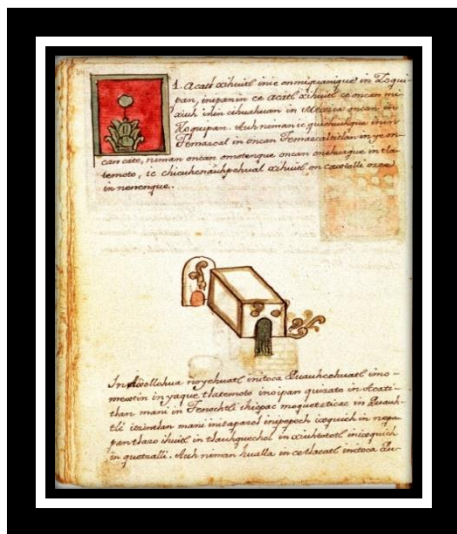 1. Acatl xihuitl inic onmiquanique in Zoqui-
pan, inipanin ce acatl xihuitl ce oncan mi-
xiuh ihin cihuahuan in Mexica oncan in
Zoquipan. Auh niman ic quichiuhque inin
Temascal in oncan Temascaltitlan in ye on-
can cate, niman oncan onehuaque in tla-
temoto, ic
xihuitl on
in nenenque.
In Axollohua noyehuatl initoca Quauhcohuatl imo-
mextin in yaque tlatemoto inoipan quizato in Acati-
tlan mani in Tenochtli icpac moquetzticac in Quauh-
tli itzintlan mani initapazol inipepech
in tlauhquechol in xiuhtototl
in quetzalli. Auh niman hualla in ce tlacatl initoca Qu-